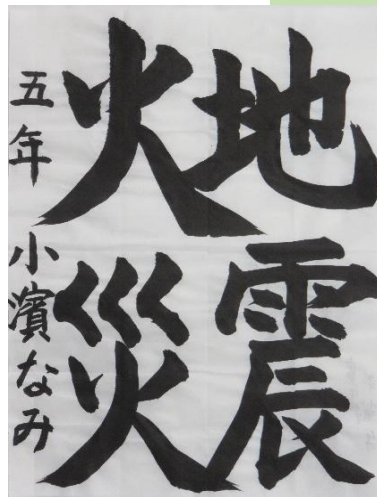 地震
火災
五年 小濱なみ